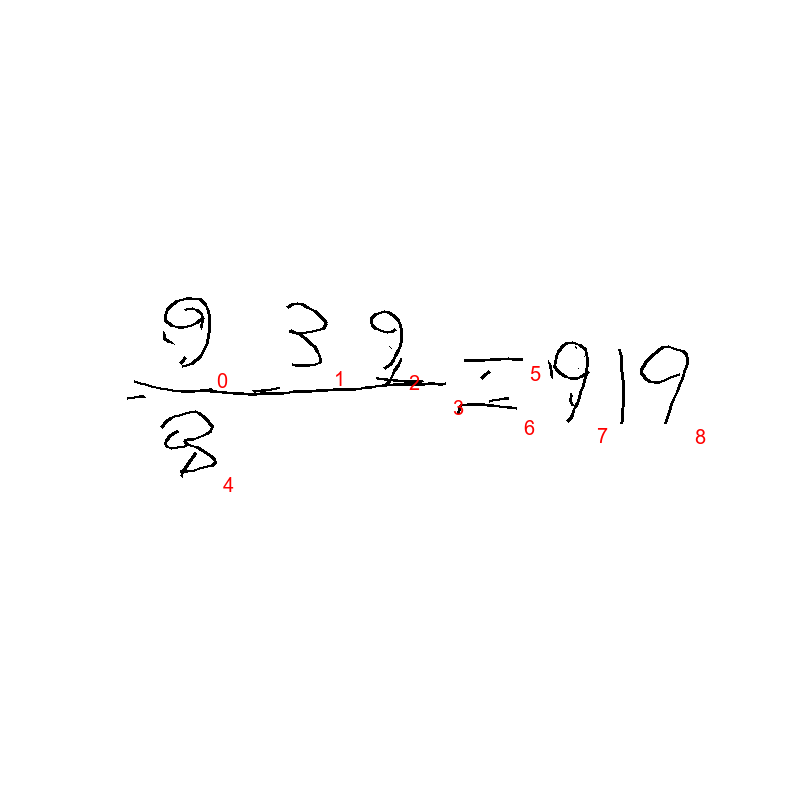 9 3 9
3
= 9 1 9
0
1
2
3
4
5
6
7
8